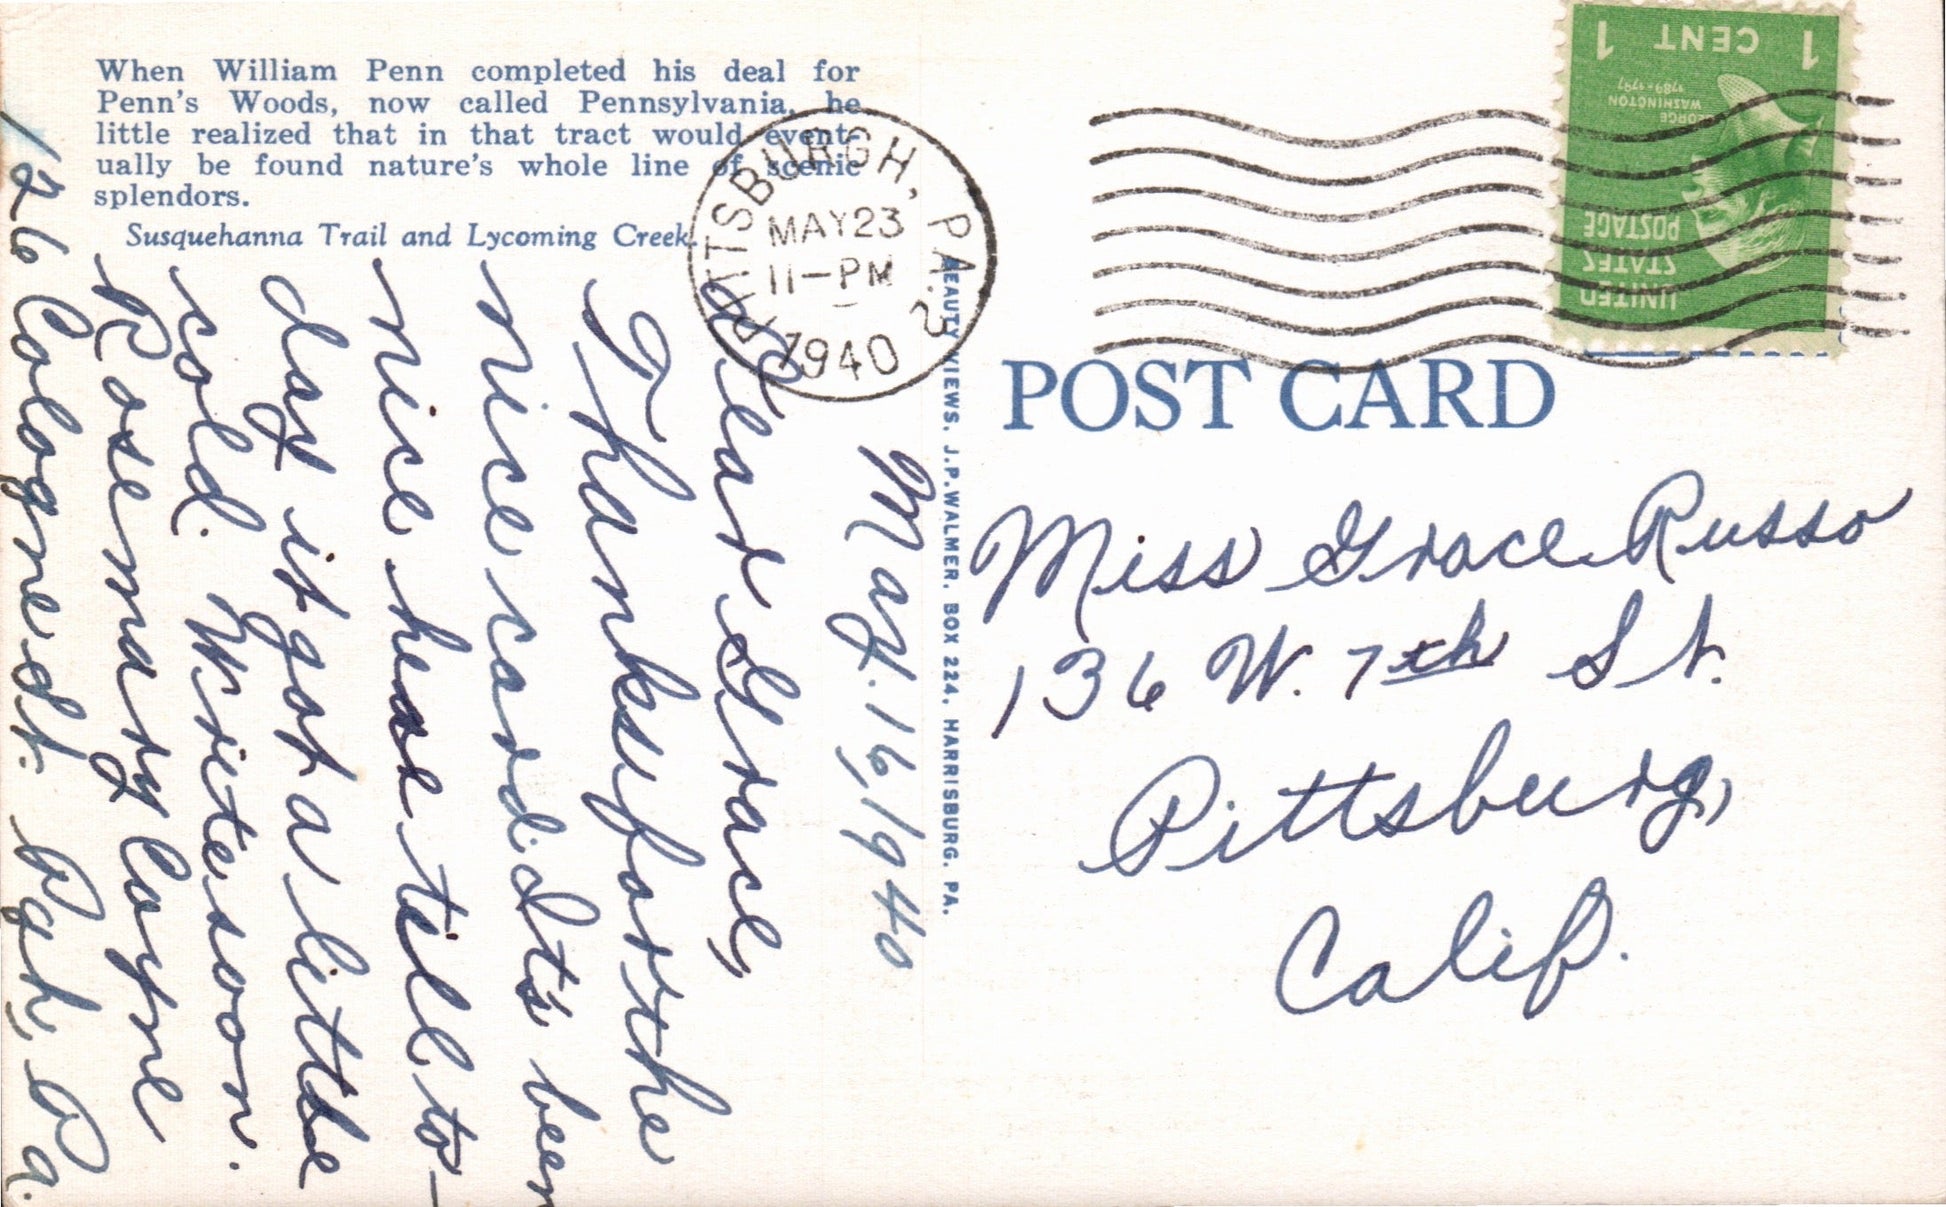 When William Penn completed his deal for
Penn's Woods, now called Pennsylvania, he
little realized that in that tract would event-
ually be found nature's whole line of scenic
splendors.
Susquehanna Trail and Lycoming Creek.
PITTSBURGH, PA. 2
MAY 23
11-PM
1940
1 CENT 1
GEORGE
WASHINGTON
1789-1797
UNITED
STATES
POSTAGE
BEAUTY VIEWS, J.P. WALMER, BOX 224, HARRISBURG, PA.
POST CARD
May. 16, 1940
Dear Grace,
Thanks for the
nice card. It's been
nice here till to-
day it got a little
cold. Write soon.
Rosemary Coyne
126 Cologne St. Pgh, Pa.
Miss Grace Russo
136 W. 7th St.
Pittsburg,
Calif.